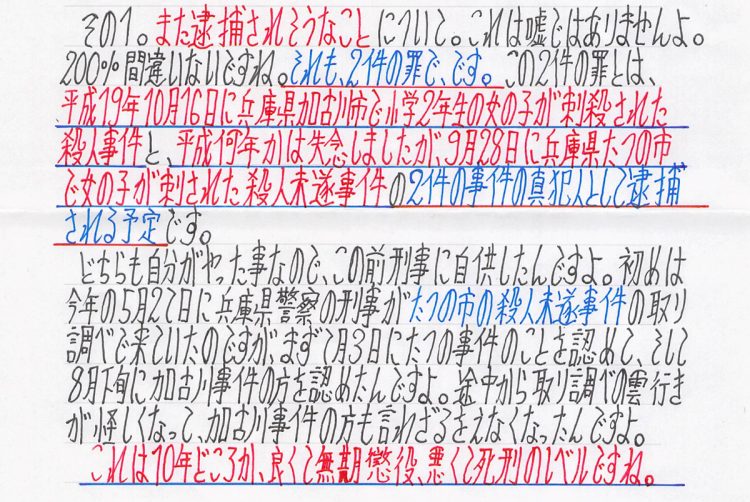 その1。また逮捕されそうなことについて。これは嘘ではありませんよ。
200%間違いないですね。それも、2件の罪で、です。この2件の罪とは、
平成19年10月16日に兵庫県加古川市で小学2年生の女の子が刺殺された
殺人事件と、平成何年かは失念しましたが、9月28日に兵庫県たつの市
で女の子が刺された殺人未遂事件の2件の事件の真犯人として逮捕
される予定です。
どちらも自分がやった事なので、この前刑事に自供したんですよ。初めは
今年の5月27日に兵庫県警察の刑事がたつの市の殺人未遂事件の取り
調べで来ていたのですが、まず7月3日にたつの事件のことを認めて、そして
8月下旬に加古川事件の方を認めたんですよ。途中から取り調べの雲行き
が怪しくなって、加古川事件の方も言わざるをえなくなったんですよ。
これは10年どころか、良くて無期懲役、悪くて死刑のレベルですね。